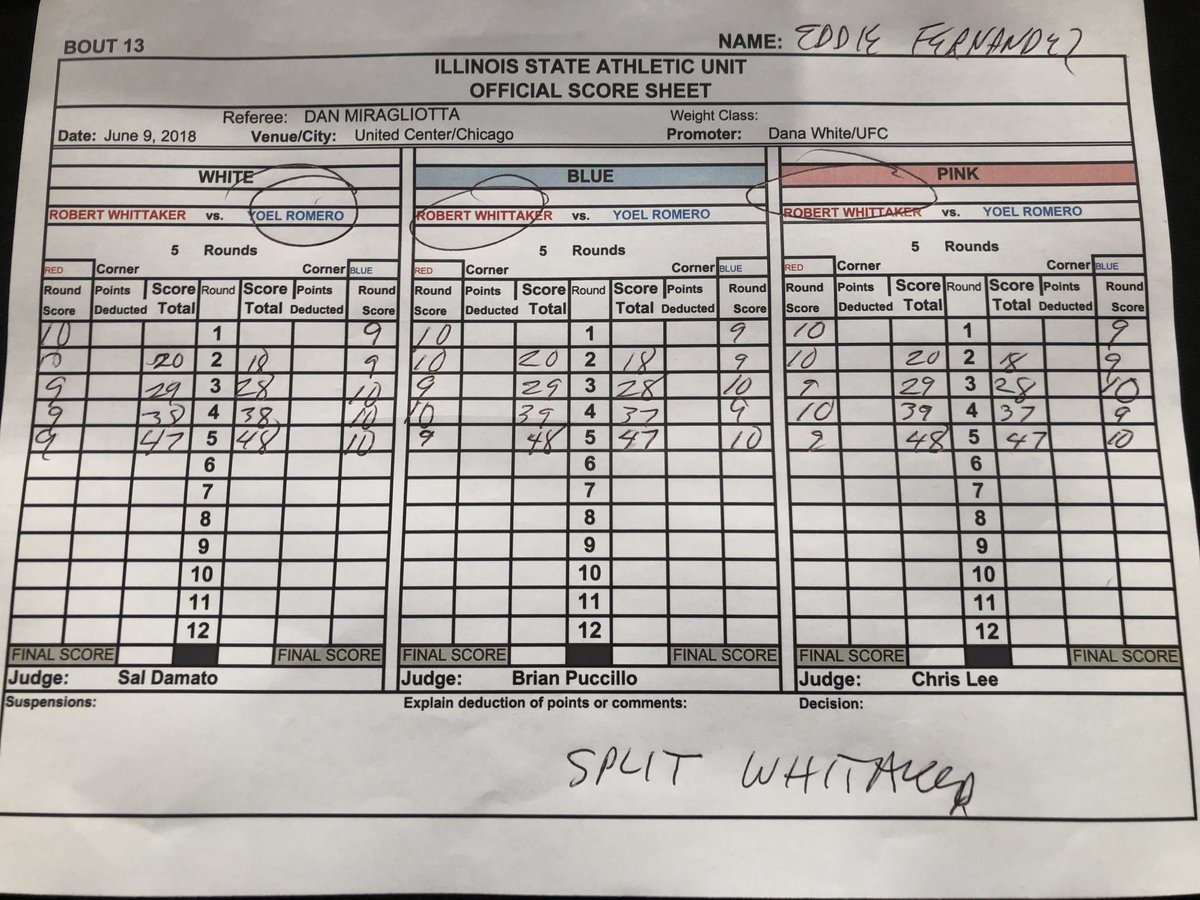 BOUT 13 NAME: EDDIE FERNANDEZ
ILLINOIS STATE ATHLETIC UNIT
OFFICIAL SCORE SHEET
Referee: DAN MIRAGLIOTTA Weight Class:
Date: June 9, 2018 Venue/City: United Center/Chicago Promoter: Dana White/UFC
WHITE BLUE PINK
ROBERT WHITTAKER vs. YOEL ROMERO ROBERT WHITTAKER vs. YOEL ROMERO ROBERT WHITTAKER vs. YOEL ROMERO
5 Rounds 5 Rounds 5 Rounds
RED Corner Corner BLUE RED Corner Corner BLUE RED Corner Corner BLUE
Round Points Score Round Score Points Round Round Points Score Round Score Points Round Round Points Score Round Score Points Round
Score Deducted Total Total Deducted Score Score Deducted Total Total Deducted Score Score Deducted Total Total Deducted Score
10 1 9 10 1 9 10 1 9
10 20 2 18 9 10 20 2 18 9 10 20 2 18 9
9 29 3 28 10 9 29 3 28 10 9 29 3 28 10
9 38 4 38 10 10 39 4 37 9 10 39 4 37 9
9 47 5 48 10 9 48 5 47 10 9 48 5 47 10
6 6 6
7 7 7
8 8 8
9 9 9
10 10 10
11 11 11
12 12 12
FINAL SCORE FINAL SCORE FINAL SCORE FINAL SCORE FINAL SCORE FINAL SCORE
Judge: Sal Damato Judge: Brian Puccillo Judge: Chris Lee
Suspensions: Explain deduction of points or comments: Decision:
SPLIT WHITAKER